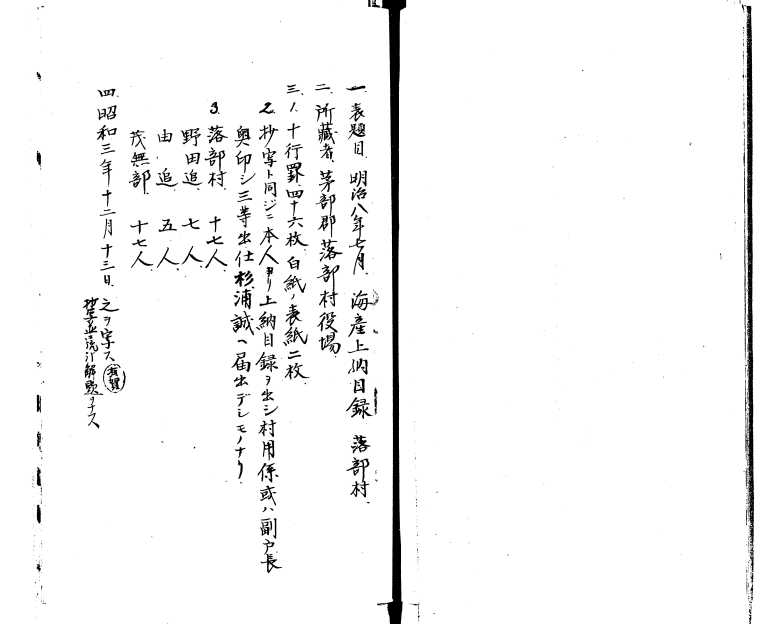 一、表題目、明治八年七月、海産上納目録 落部村、
二、所蔵者、茅部郡落部村役場、
三、1、十行罫、四十六枚、白紙ノ表紙二枚、
2、抄写ト同ジニ本人ヨリ上納目録ヲ出シ村用係或ハ副戸長
奥印シ三等出仕杉浦誠ヘ届出デシモノナリ、
3、落部村 十七人、
野田追 七人、
由追 五人、
茂無部 十七人、
四、昭和三年十二月十三日、之ヲ写ス
解題ヲナス